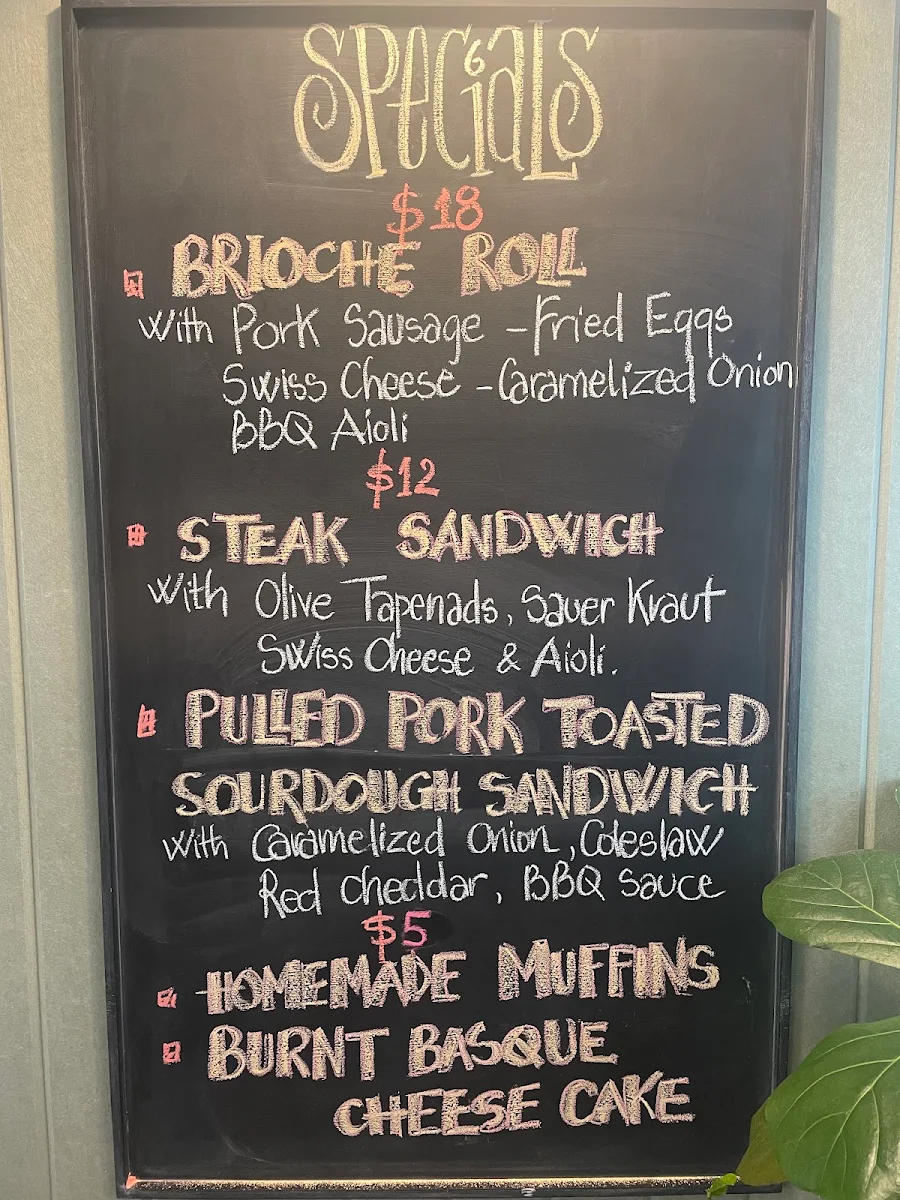 SPeciaLS
$18
BRIOCHE ROLL
with Pork Sausage - Fried Eggs
Swiss Cheese - Caramelized Onion
BBQ Aioli
$12
STEAK SANDWICH
with Olive Tapenads, Sauer Kraut
Swiss Cheese & Aioli.
PULLED PORK TOASTED
SOURDOUGH SANDWICH
with Caramelized Onion, Coleslaw
Red Cheddar, BBQ Sauce
$5
HOMEMADE MUFFINS
BURNT BASQUE
CHEESE CAKE